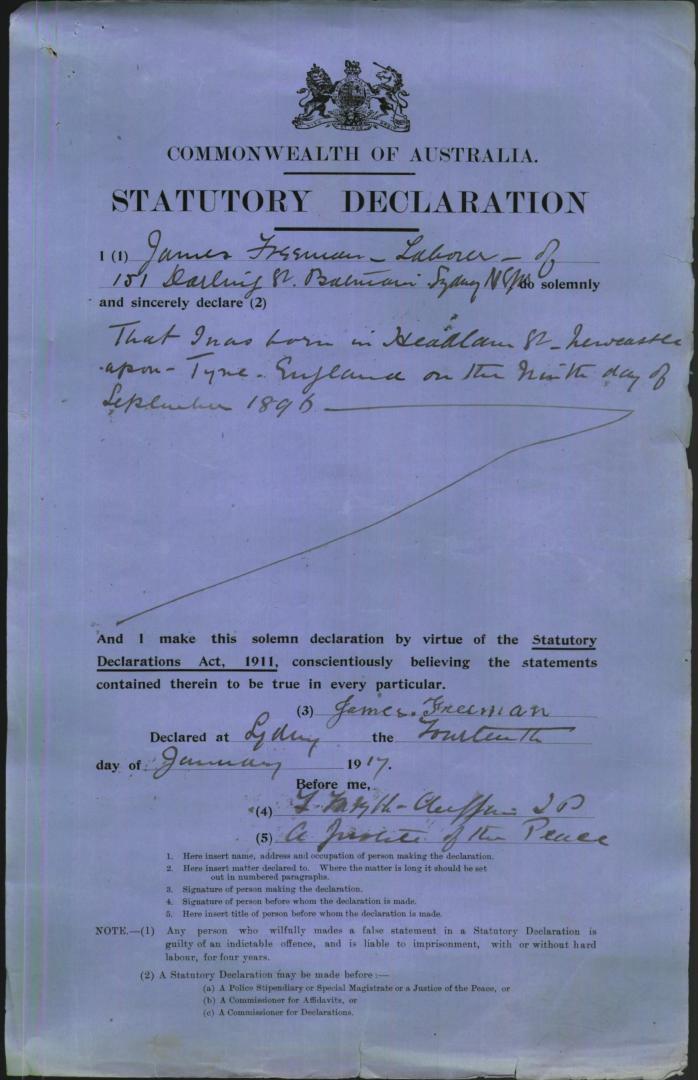 COMMONWEALTH OF AUSTRALIA.
STATUTORY DECLARATION
I (1) James Freeman - Laborer - of
151 Darling St. Balmain Sydney NSW do solemnly
and sincerely declare (2)
That I was born in Headlam St - Newcastle
upon - Tyne - England on the Ninth day of
September 1896
And I make this solemn declaration by virtue of the Statutory
Declarations Act, 1911, conscientiously believing the statements
contained therein to be true in every particular.
(3) James. Freeman
Declared at Sydney the Fourteenth
day of January 1917.
Before me,
(4) JP
(5) A Justice of the Peace
1. Here insert name, address and occupation of person making the declaration.
2. Here insert matter declared to. Where the matter is long it should be set
out in numbered paragraphs.
3. Signature of person making the declaration.
4. Signature of person before whom the declaration is made.
5. Here insert title of person before whom the declaration is made.
NOTE.—(1) Any person who wilfully mades a false statement in a Statutory Declaration is
guilty of an indictable offence, and is liable to imprisonment, with or without hard
labour, for four years.
(2) A Statutory Declaration may be made before :—
(a) A Police Stipendiary or Special Magistrate or a Justice of the Peace, or
(b) A Commissioner for Affidavits, or
(c) A Commissioner for Declarations.